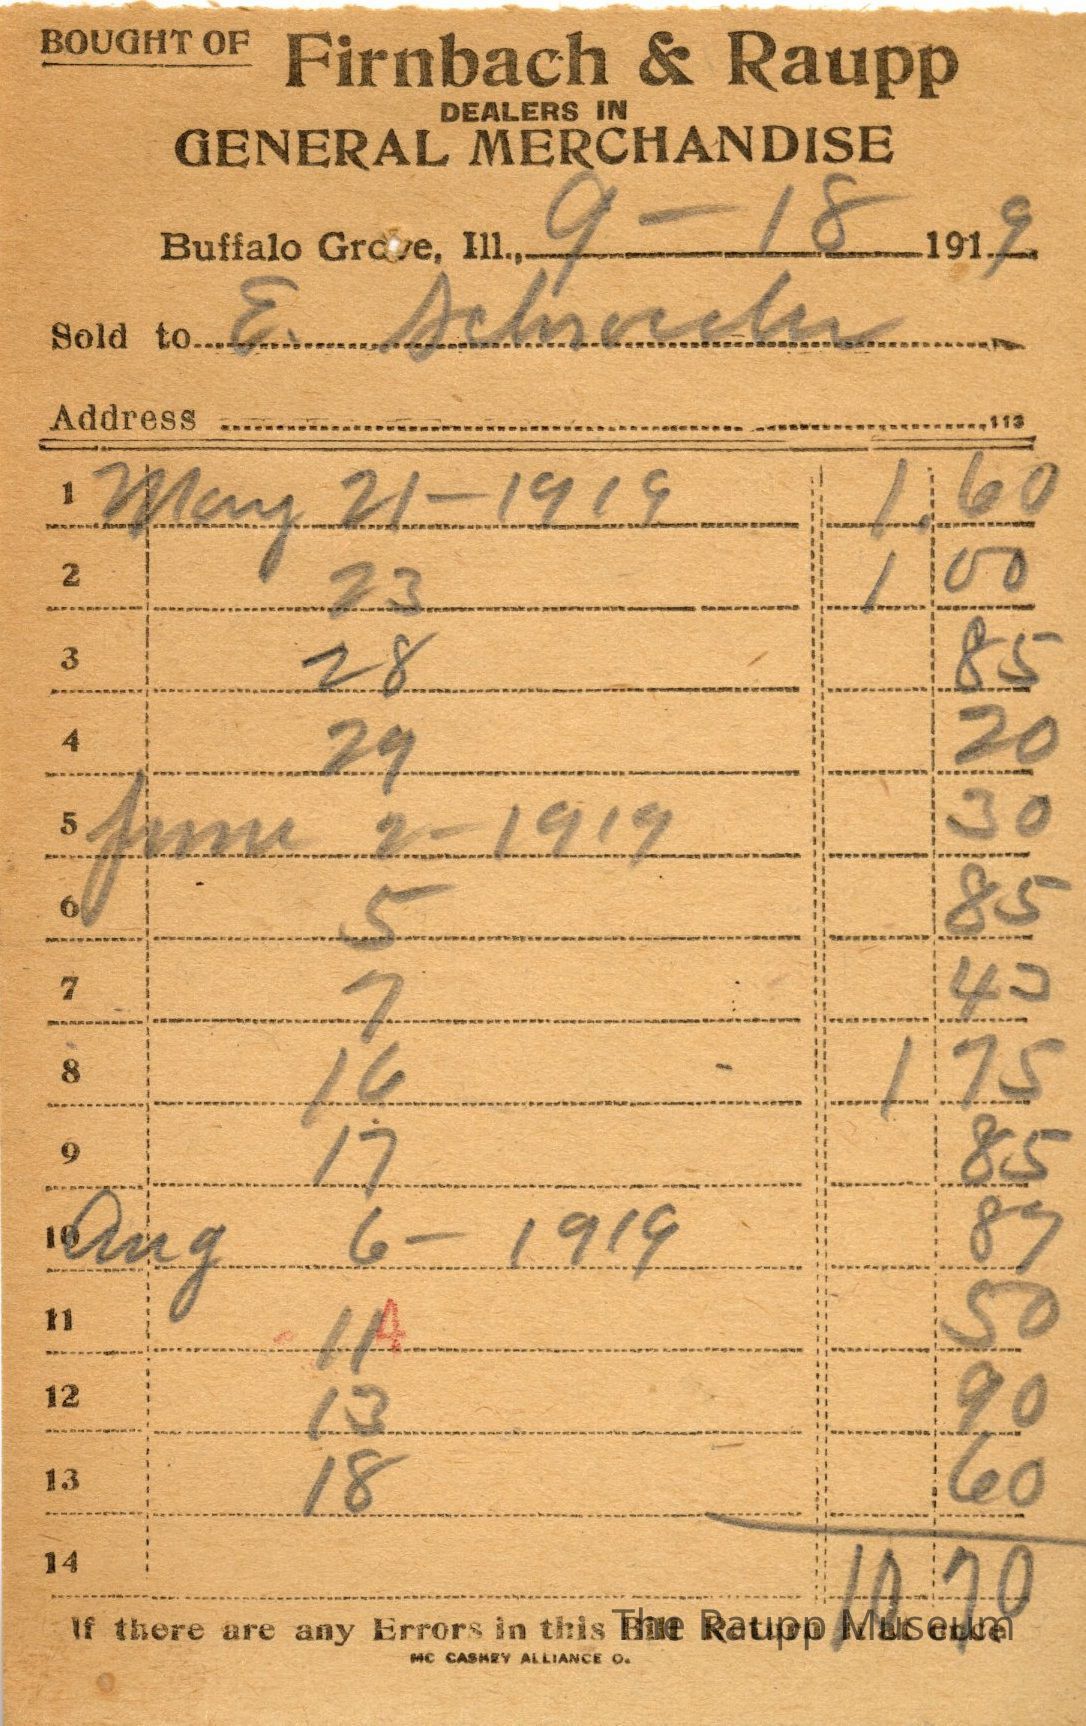 BOUGHT OF Firnbach & Raupp
DEALERS IN
GENERAL MERCHANDISE
Buffalo Grove, Ill., 9-18 1919
Sold to E. Schroeder
Address 113
1 May 21-1919 1.60
2 23 1 00
3 28 85
4 29 20
5 June 2-1919 30
6 5 85
7 7 43
8 16 1 75
9 17 85
10 Aug 6-1919 87
11 11 4 50
12 13 90
13 18 60
14 10.70
If there are any Errors in this Bill Return at once
The Raupp Museum
MC CASKEY ALLIANCE O.